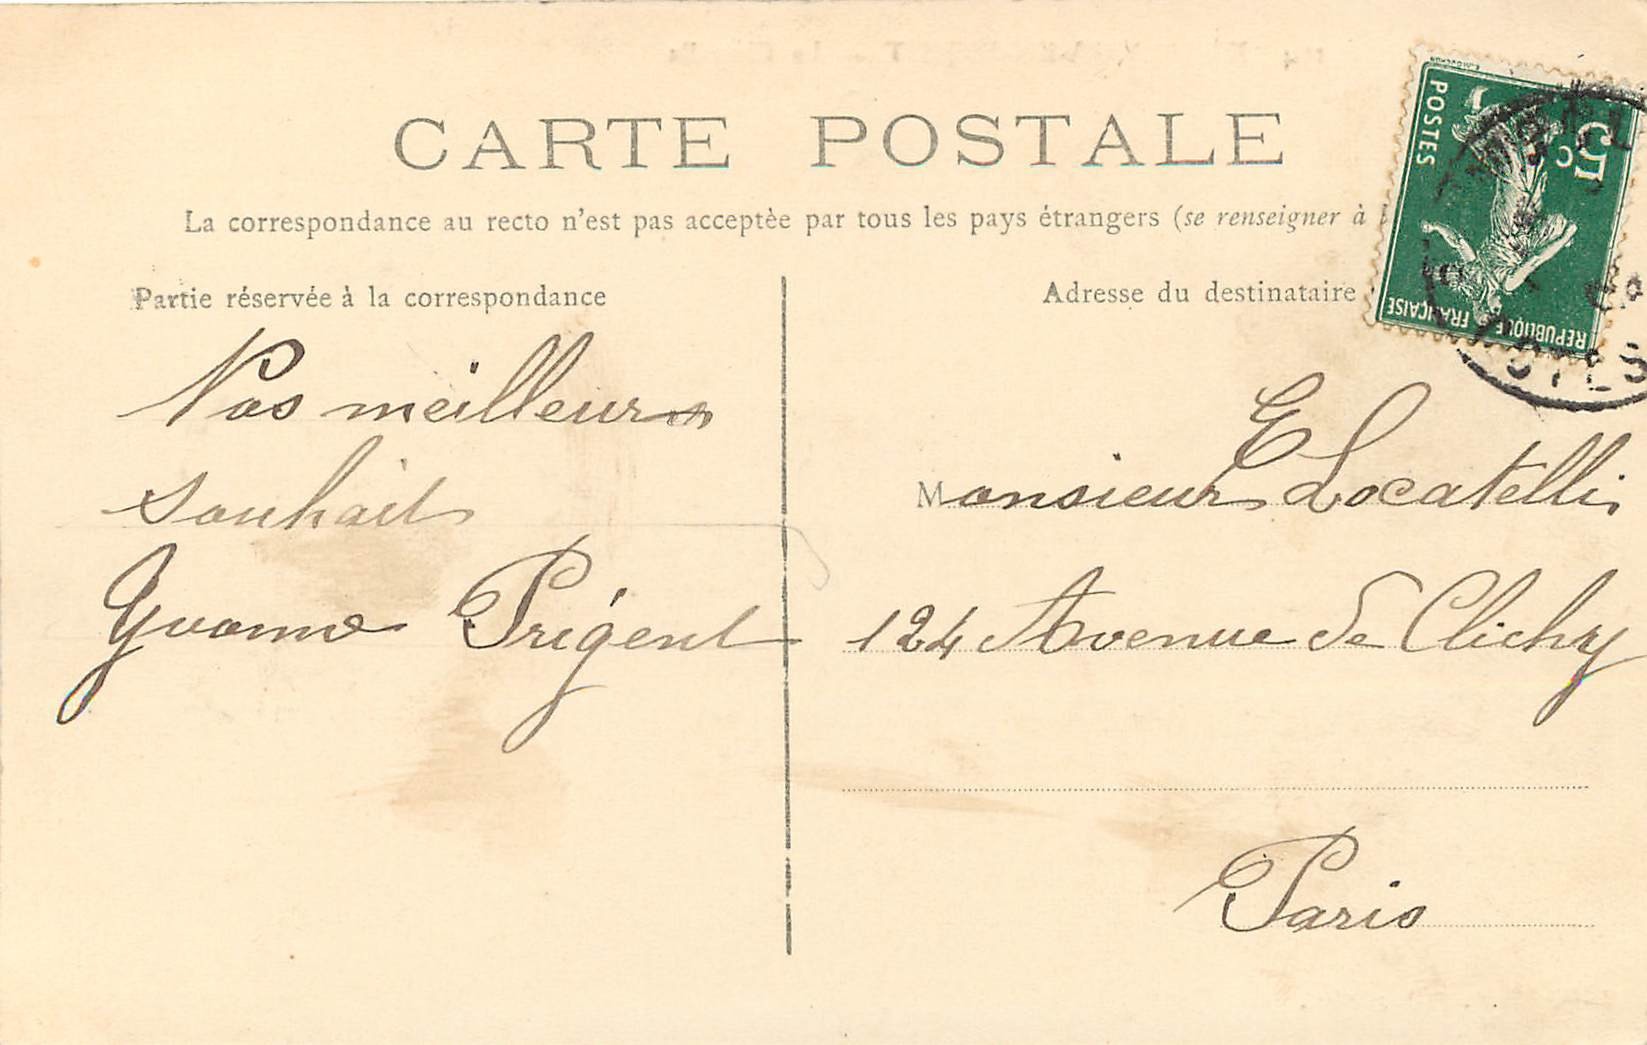 CARTE POSTALE
La correspondance au recto n'est pas acceptée par tous les pays étrangers (se renseigner à
Partie réservée à la correspondance
Nos meilleurs
souhait
Yvonne Prigent
Adresse du destinataire
Monsieur E Locatelli
124 Avenue de Clichy
Paris
POSTES
5c
REPUBLIQUE FRANÇAISE